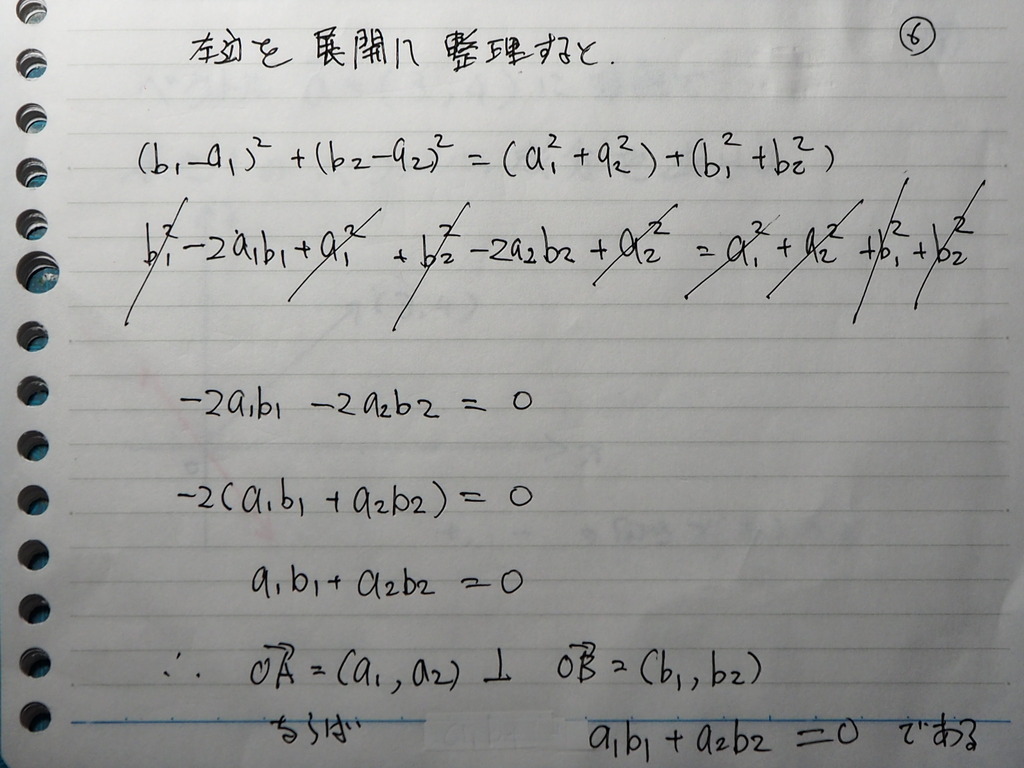 ⑥
左辺を 展開して 整理すると.
(b₁-a₁)² + (b₂-a₂)² = (a₁² + a₂²) + (b₁² + b₂²)
b₁² - 2a₁b₁ + a₁² + b₂² - 2a₂b₂ + a₂² = a₁² + a₂² + b₁² + b₂²
-2a₁b₁ - 2a₂b₂ = 0
-2(a₁b₁ + a₂b₂) = 0
a₁b₁ + a₂b₂ = 0
∴ OA→ = (a₁, a₂) ⊥ OB→ = (b₁, b₂)
ならば a₁b₁ + a₂b₂ = 0 である